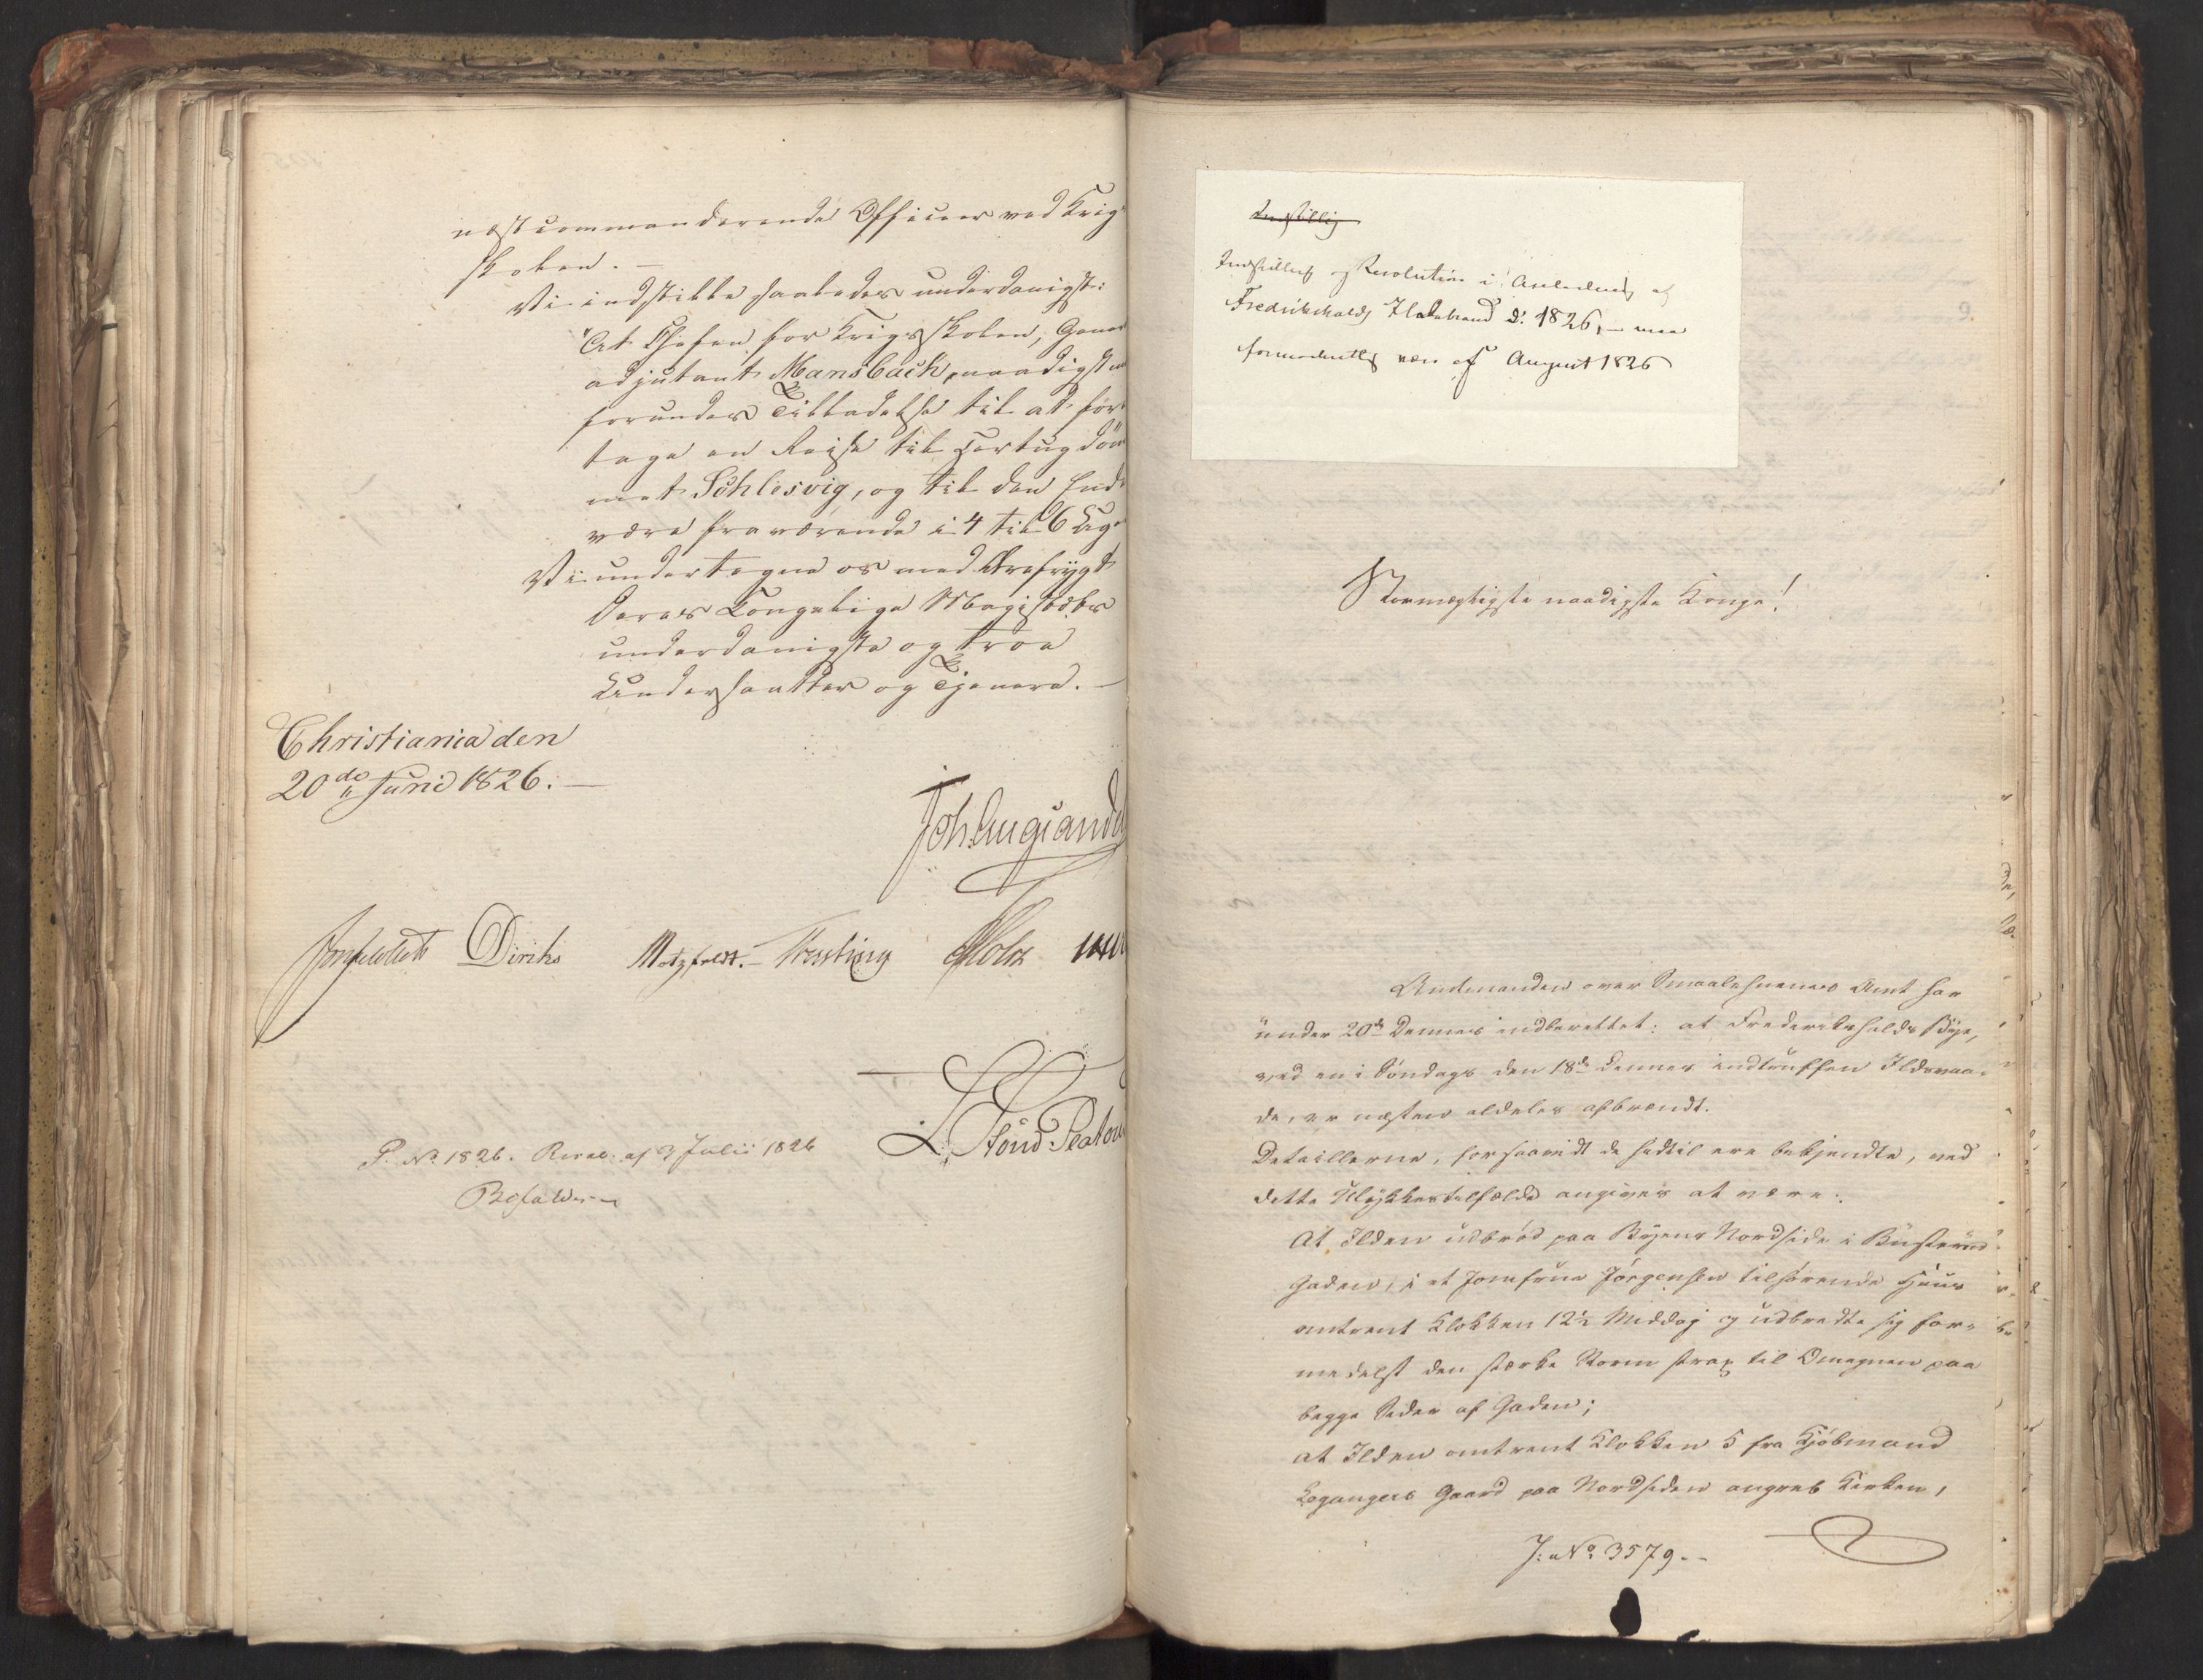 næstcommanderende Officeer ved Krigs
skolen. —
Vi indstille saaledes underdanigst:
"At Chefen for Krigsskolen, General
adjutant Mansbach, naadigst
forundes Tilladelse til at fore
tage en Reise til Hertugdöm
met Schlesvig, og til den Ende
være fraværende i 4 til 6 Uger
Vi undertegne os med Ærefrygt
Deres Kongelige Majestæts
underdanigste og troe
Undersaatter og Tjenere. —
Christiania den
20de Juni 1826. —
Joh. Aug. Sand
Diriks Motzfeldt. Treschow Holst
P. No 1826. Resol. af 3 Julii 1826
L.
Indstillig
Indstilling og Resolution i Anledning af
Fredrikshalds Ildebrand d. 1826, — maa
formodentlig være af August 1826
Stormægtigste naadigste Konge!
Amtmanden over Smaalehnenes Amt har
under 20de dennes indberettet: at Frederikshalds Bye,
ved en i Söndags den 18de dennes indtruffen Ildsvaa-
de, er næsten aldeles afbrændt.
Detaillerne, forsaavidt de hidtil ere bekjendte, ved
dette Ulykkestilfælde angives at være:
At Ilden udbröd paa Byens Nordside i
Gaden, i et Jomfrue Jörgensen tilhörende Huus
omtrent Klokken 12½ Middag og udbredte sig for-
medelst den stærke Storm strax til Omegnen paa
begge Sider af Gaden;
at Ilden omtrent Klokken 5 fra Kjöbmand
Gaard paa Nordsiden angreb Kirken,
J: No 3579. —